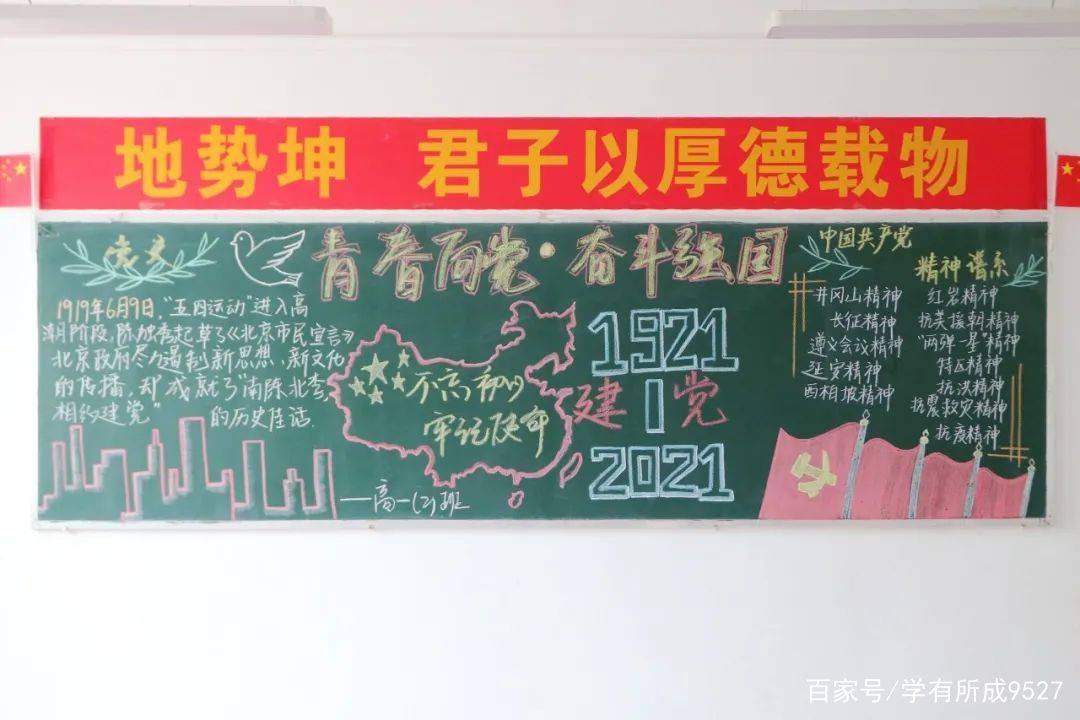 地势坤 君子以厚德载物
青春向党·奋斗强国
党史
1919年6月9日,"五四运动"进入高
潮阶段,陈独秀起草了《北京市民宣言》
北京政府尽力遏制新思想、新文化
的传播,却成就了"南陈北李,
相约建党"的历史佳话.
不忘初心
牢记使命
——高一(2)班
1921
建 | 党
2021
中国共产党
精神谱系
井冈山精神
长征精神
遵义会议精神
延安精神
西柏坡精神
红岩精神
抗美援朝精神
"两弹一星"精神
特区精神
抗洪精神
抗震救灾精神
抗疫精神
百家号/学有所成9527